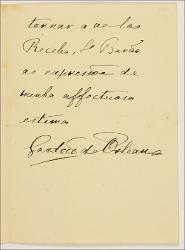 tornar a ve-las
Receba, Sr Barão
as expressões de
minha affectuosa
estima
Gastão de Orleans